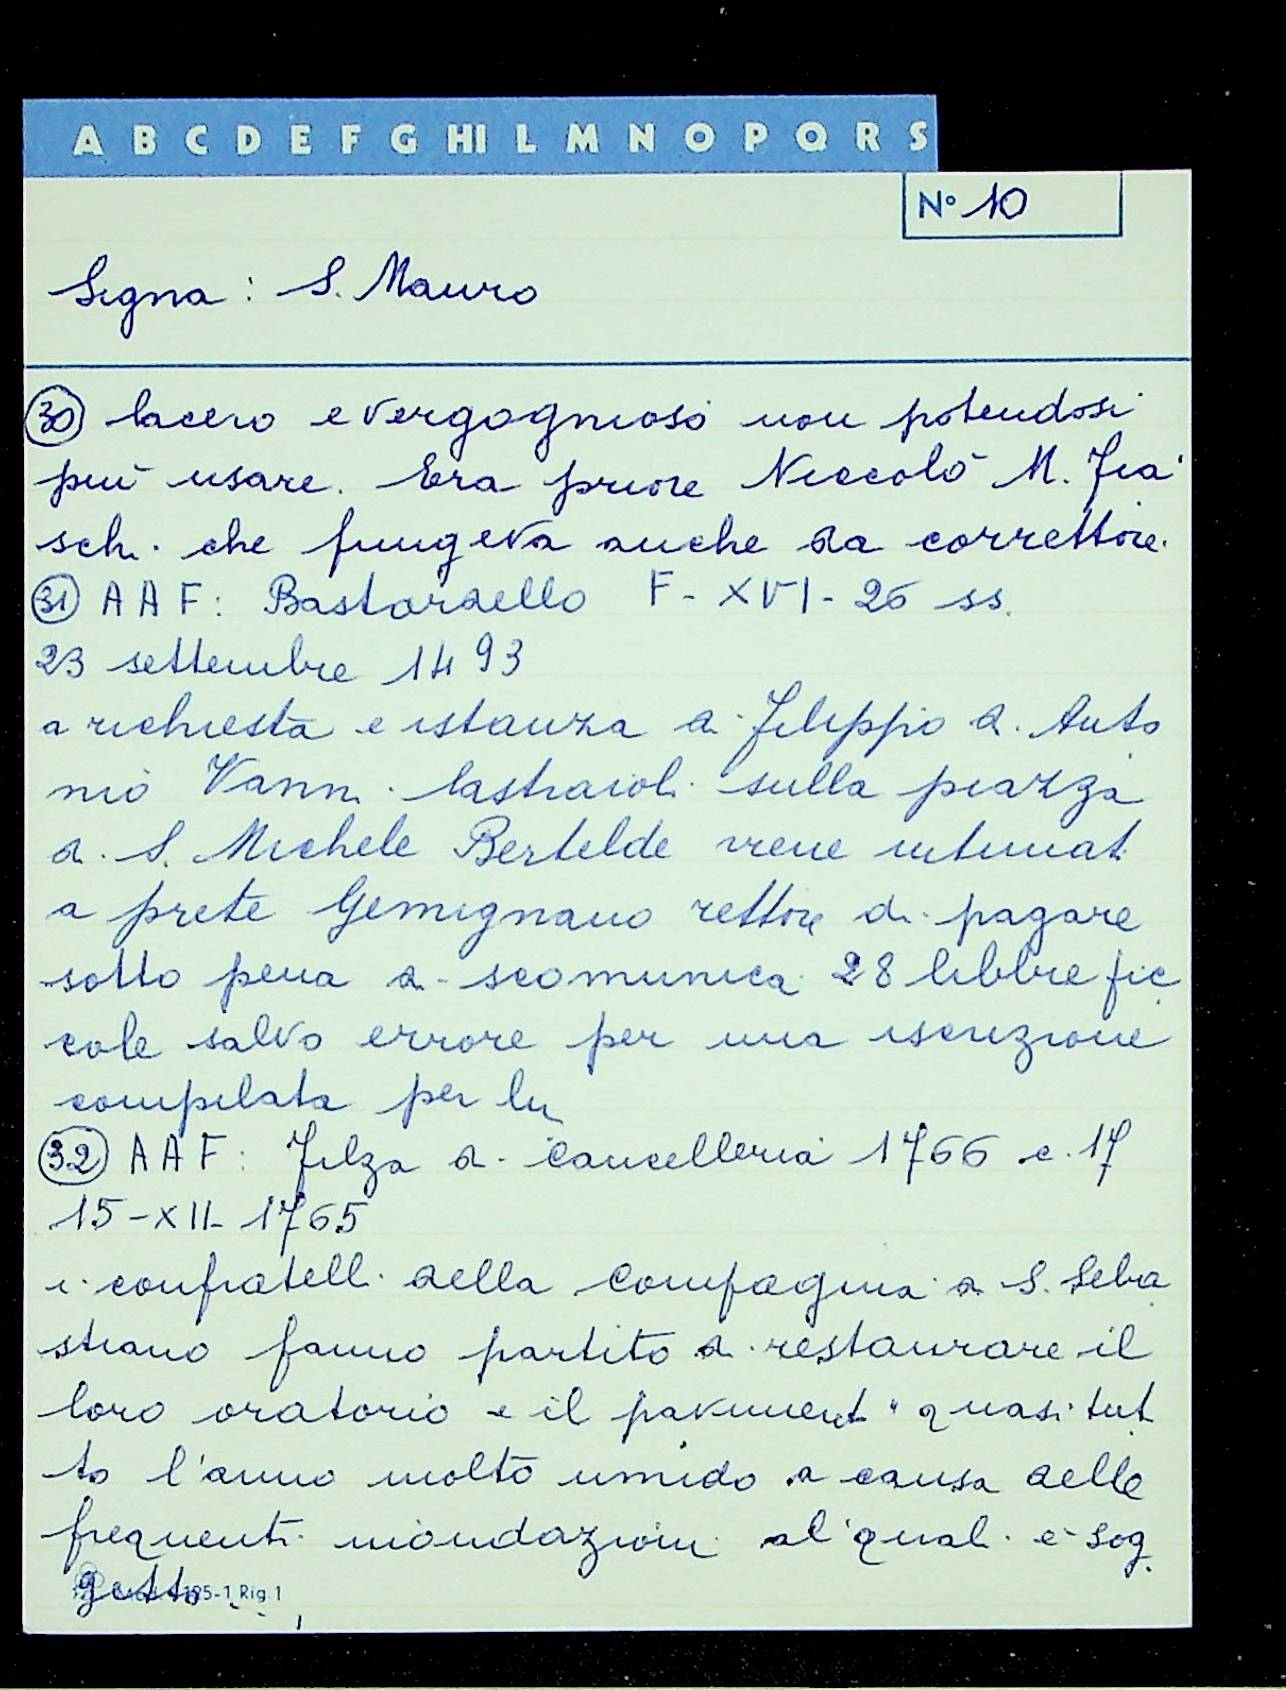 A B C D E F G HI L M N O P Q R S
N° 10
Signa: S. Mauro
30 lacero e vergognoso non potendosi
più usare. Era priore Niccolò M. Fia
schi che fungeva anche da correttore.
31 A A F: Bastardello F-XVI-26 ss.
23 settembre 1493
a richiesta e istanza di Filippo di Anto
nio Vanni lastraioli sulla piazza
di S. Michele Bertelde viene intimat
a prete Gemignano rettore di pagare
sotto pena di scomunica 28 libbre pic
cole salvo errore per una iscrizione
compilata per lui
32 A A F: Filza di Cancelleria 1766 c. 17
15-XII-1765
i confratelli della Compagnia di S. Seba
stiano fanno partito di restaurare il
loro oratorio e il paviment "quasi tut
to l'anno molto umido a causa delle
frequenti inondazioni al quali è sog
getto..
195-1 Rig. 1